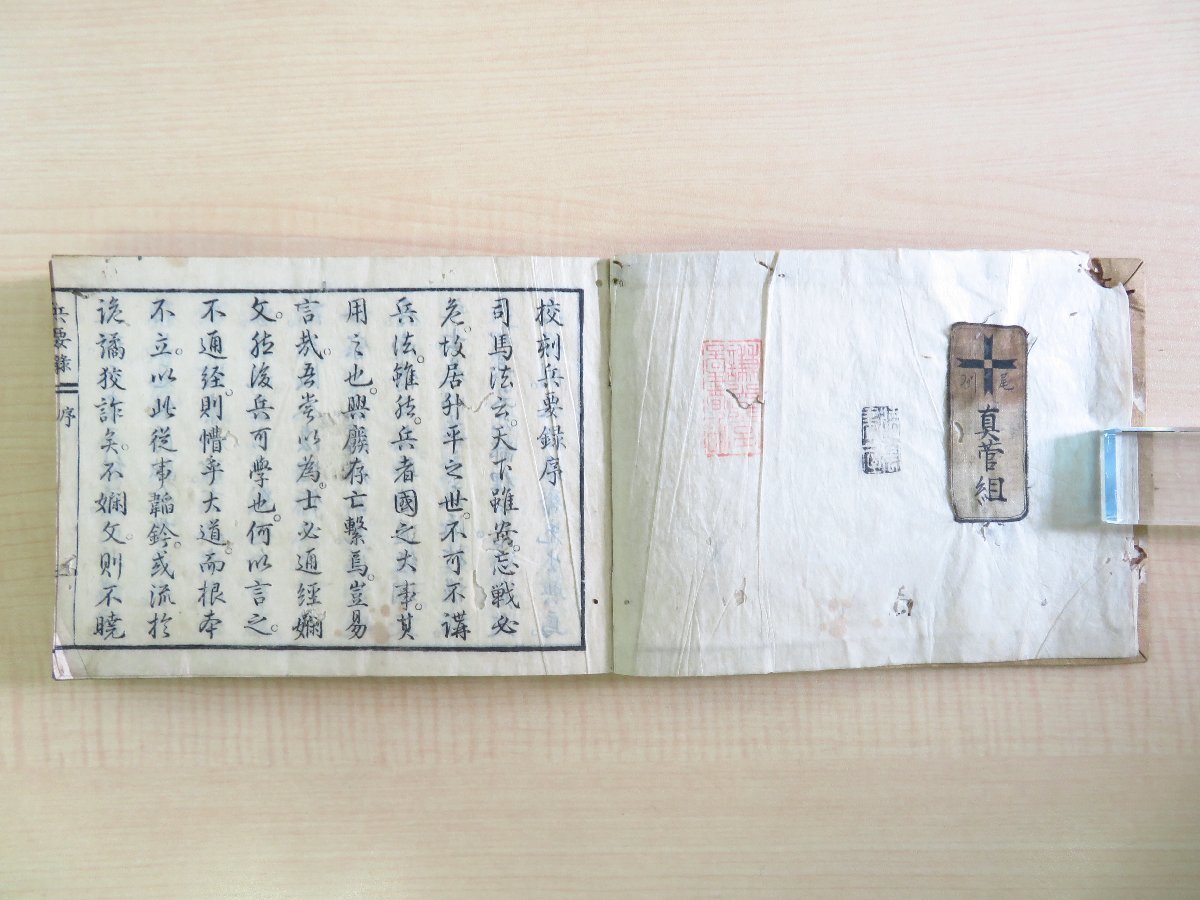 尾
州
真菅組
校刻兵要録序
司馬法云。天下雖安。忘戦必
危。故居升平之世。不可不講
兵法。雖然。兵者國之大事。其
用之也。興廢存亡繫焉。豈易
言哉。吾嘗以為。士必通經嫻
文。然後兵可學也。何以言之。
不通経。則懵乎大道。而根本
不立。以此従事韜鈐。或流於
詭譎狡詐矣。不嫻文。則不曉
兵要録
序